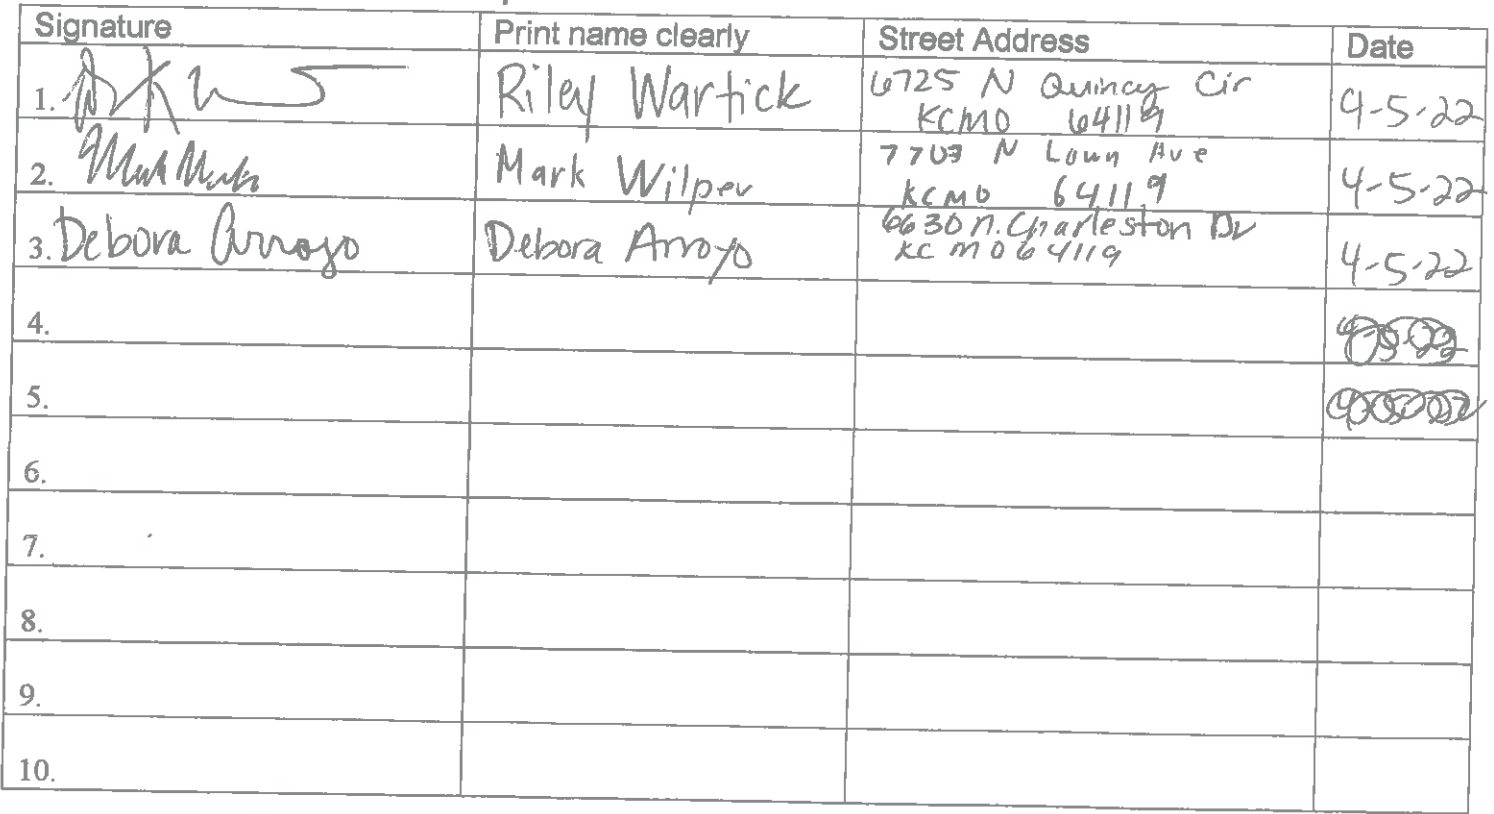 Signature Print name clearly Street Address Date
1. Riley Wartick 6725 N Quincy Cir 4-5-22
KCMO 64119
2. Mark Wilper 7703 N Lawn Ave 4-5-22
KCMO 64119
3. Debora Arroyo Debora Arroyo 6630 N. Charleston Dr 4-5-22
KC MO 64119
4.
5.
6.
7.
8.
9.
10.